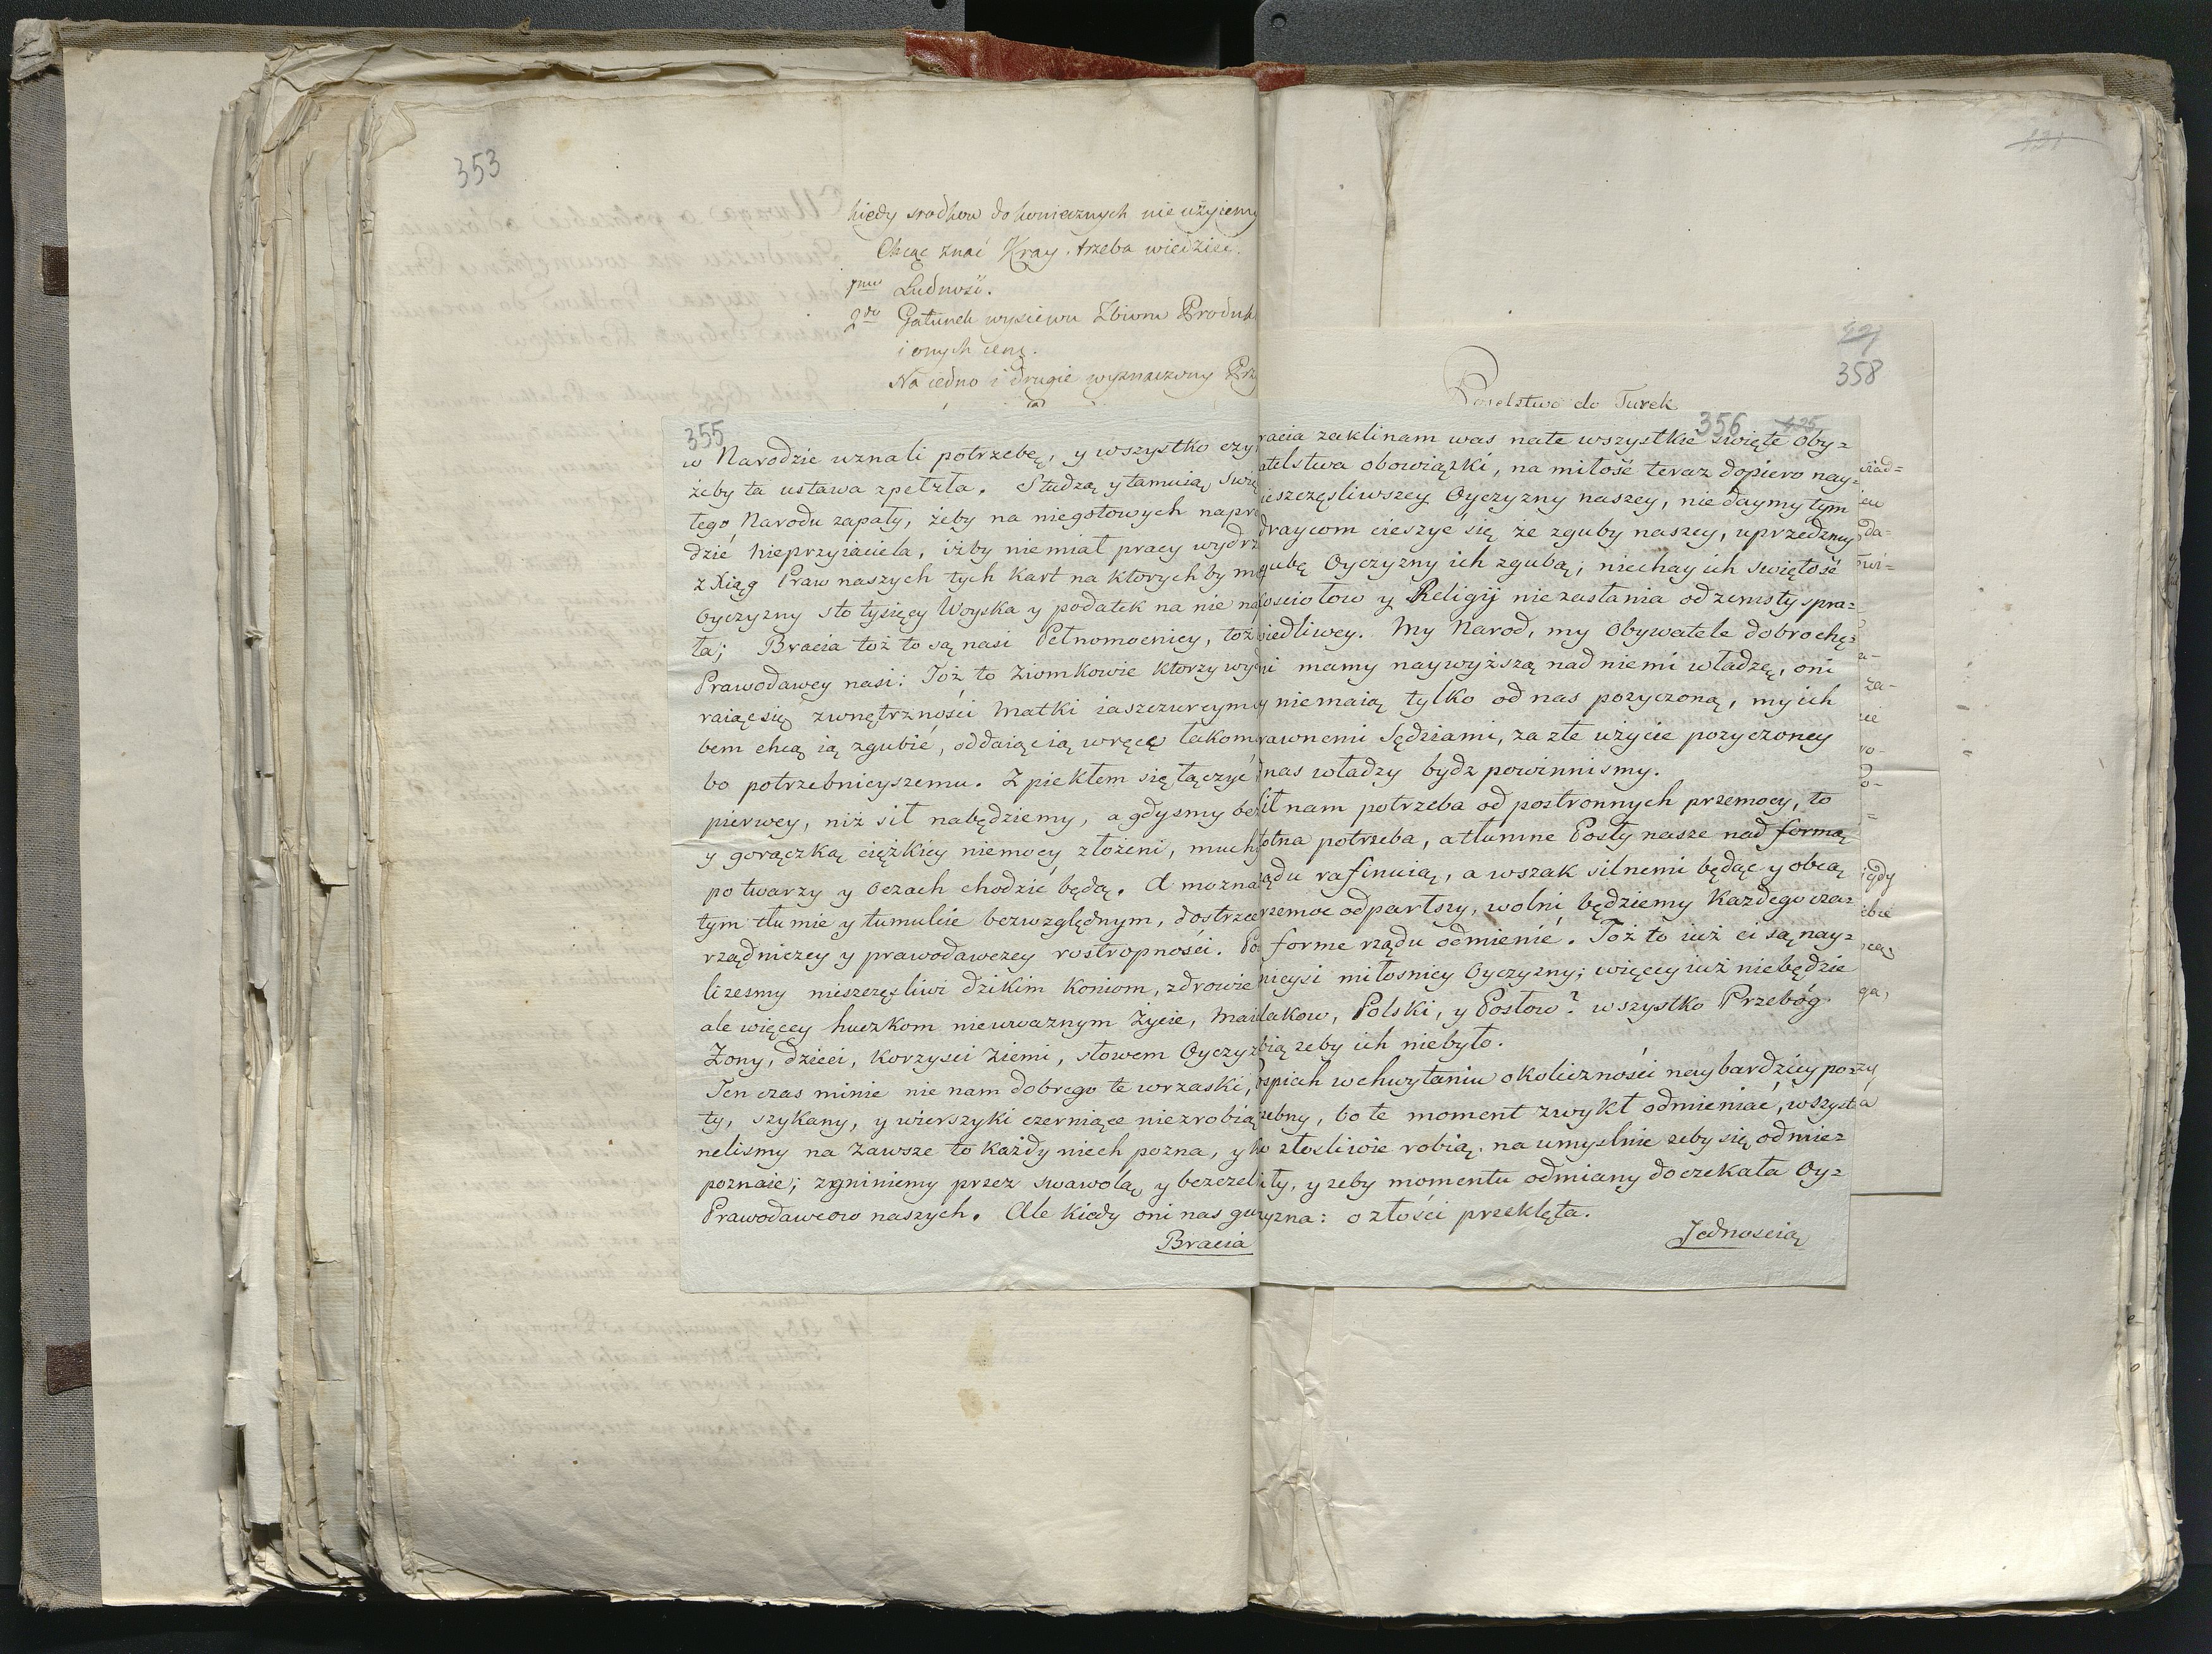 353
kiedy srodkow dokoniecznych nie użyiemy
Chcąc znać Kray, trzeba wiedzieć.
1mo Ludność.
2do Gatunek wysiewu Zbioru Produk
i onych cenę.
Na iedno i drugie wyznaczony Prz
355
w Narodzie uznali potrzebę, y wszystko czy
żeby ta ustawa zpełzła. Studzą y tamuią swię
tego Narodu zapały, żeby na niegotowych napro
dzić Nieprzyiaciela, iżby niemiał pracy wydrz
z Xiąg Praw naszych tych kart na ktorych by
Oyczyzny sto tysięcy Woyska y podatek na nie na
ła; Bracia toż to są nasi Pełnomocnicy, toż
Prawodawcy nasi: Toż to Ziomkowie ktorzy wyd
raiąc się zwnętrzności Matki iaszczurcym
bem chcą ią zgubić, oddaiąc ią wręce łakom
bo potrzebnieyszemu. Z piekłem się łączyć
pierwey, niż sił nabędziemy, a gdysmy be
y gorączką ciężkiey niemocy złożeni, much
po twarzy y oczach chodzić będą. A mozna
tym tłumie y tumulcie bezwzględnym, dostrzec
rządniczey y prawodawczey rostropności. Po
lizesmy nieszczęśliwi dzikim koniom, zdrowie
ale więcey huczkom nieuwaznym życie, Maią
Żony, dzieci, korzysci ziemi, słowem Oyczyz
Ten czas minie nie nam dobrego te wrzaski,
ty, szykany, y wierszyki czerniące niezrobią
nelismy na zawsze to każdy niech pozna, y k
poznaie; zginiemy przez swawolą y bezczel
Prawodawcow naszych. Ale kiedy oni nas gu
Bracia
131
358
Poselstwo do Turek
356
racia zaklinam was nate wszystkie święte Oby=
atelstwa obowiązki, na miłość teraz dopiero nay=
ieszczęsliwszey Oyczyzny naszey, niedaymy tym
draycom cieszyć się ze zguby naszey, uprzedzmy
gubę Oyczyzny ich zgubą; niechay ich swiętość
osciołow y Religij niezasłania od zemsty spra=
iedliwey. My Narod, my Obywatele dobrochę=
ni mamy naywyższą nad niemi władzę, oni
y niemaią tylko od nas pozyczoną, my ich
rawnemi Sędziami, za złe użycie pozyczoney
nas władzy bydz powinnismy.
ił nam potrzeba od postronnych przemocy, to
totna potrzeba, a tłumne Posły nasze nad formą
ądu rafinuią, a wszak silnemi będąc y obcą
rzemoc odpartszy, wolni będziemy każdego cza=
forme rządu odmienić. Toż to iuż ci są nay=
nieysi miłosnicy Oyczyzny; więcey iuż niebędzie
lakow, Polski, y Posłow? wszystko Przebóg
ią zeby ich niebyło.
ospiech wchwytaniu okoliczności naybardziey po=
zebny, bo te moment zwykł odmieniać, wszyst
ko złosliwie robią, na umyslnie zeby się odmie=
ły, y zeby momentu odmiany doczekała Oy=
yzna: o złości przeklęta.
Jednoscią